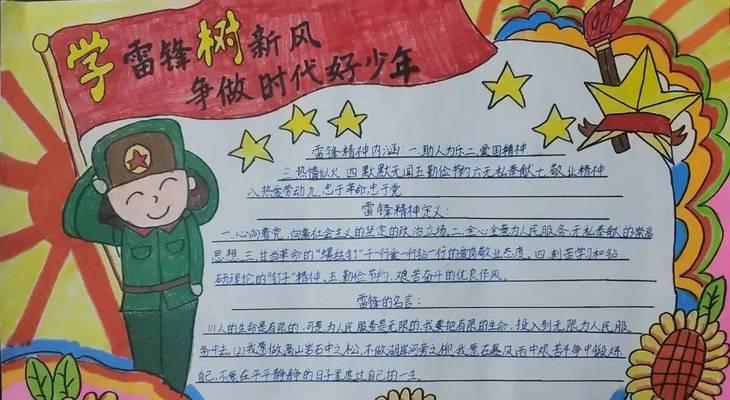 学雷锋树新风
争做时代好少年
雷锋精神内涵:一.助人为乐二.爱国精神
三.热情似火.四.默默无闻五.勤俭节约六.无私奉献七.敬业精神
八.热爱劳动九.忠于革命,忠于党
雷锋精神定义:
一.心向着党、向着社会主义的坚定的政治立场.二.全心全意为人民服务.无私奉献的崇高
思想.三.甘当革命的"螺丝钉"干一行爱一行钻一行的爱岗敬业态度.四.刻苦学习和钻
研理论的"钉子"精神、五.勤俭节约、艰苦奋斗的优良作风。
雷锋的名言:
(1)人的生命是有限的,可是,为人民服务是无限的,我要把有限的生命,投入到无限为人民服
务中去。(2)我愿做高山岩石中之松,不做湖岸河旁之柳.我愿在暴风雨中艰苦斗争中锻炼
自己,不愿在平平静静的日子里度过自己的一生。